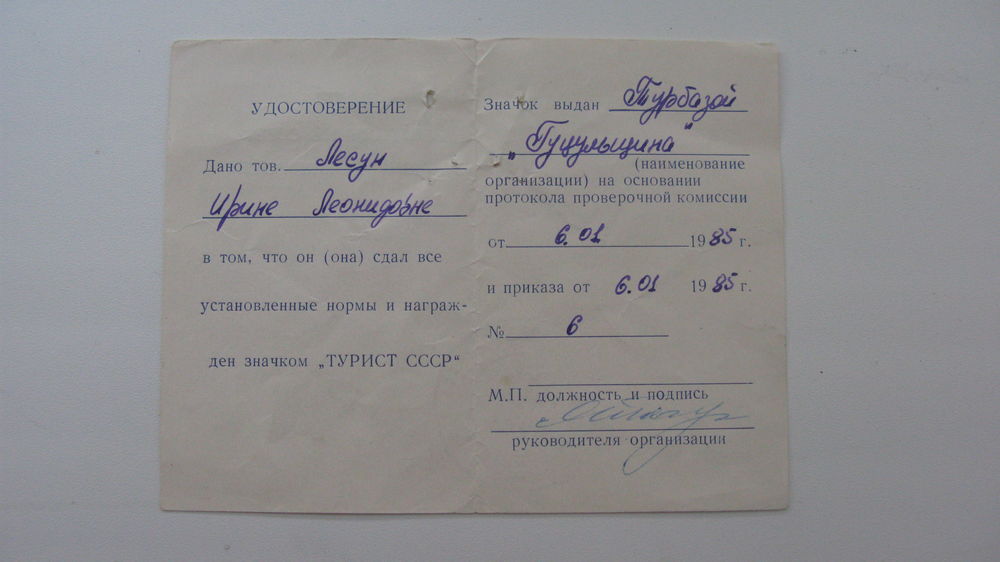 УДОСТОВЕРЕНИЕ
Дано тов. Лесун
Ирине Леонидовне
в том, что он (она) сдал все
установленные нормы и награж-
ден значком „ТУРИСТ СССР“
Значок выдан Турбазой
„Гуцульщина“
(наименование
организации) на основании
протокола проверочной комиссии
от 6.01 1985 г.
и приказа от 6.01 1985 г.
№ 6
М.П. должность и подпись
руководителя организации